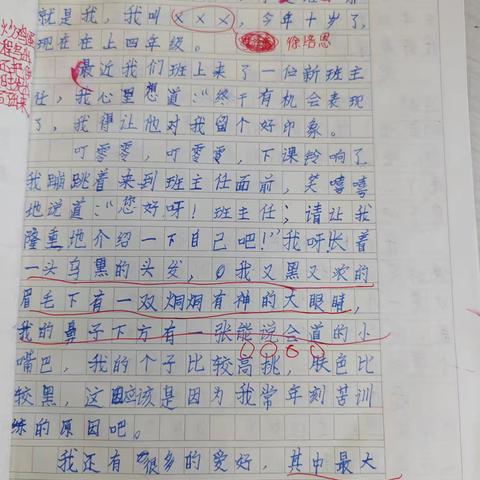 就是我，我叫×××，今年十岁了，
现在在上四年级。
徐培恩
最近我们班上来了一位新班主
任，我心里想道：“终于有机会表现
了，我得让他对我留个好印象。
叮零零，叮零零，下课铃响了
我蹦跳着来到班主任面前，笑嘻嘻
地说道：“您好呀！班主任；请让我
隆重地介绍一下自己吧！”我呀长着
一头乌黑的头发，我又黑又浓的
眉毛下有一双炯炯有神的大眼睛，
我的鼻子下方有一张能说会道的小
嘴巴，我的个子比较高挑，肤色比
较黑，这应该是因为我常年刻苦训
练的原因吧。
我还有很多的爱好，其中最大